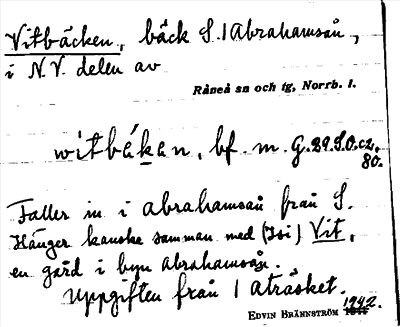 Vitbäcken, bäck S. i Abrahamsån,
i N.V. delen av
Råneå sn och tg, Norrb. l.
witbákan, bf. m. G. 29. S.O. c2.
80.
Faller in i Abrahamsån från S.
Hänger kanske samman med (Isi) Vit,
en gård i byn Abrahamsån.
Uppgiften från 1 Aträsket.
EDVIN BRÄNNSTRÖM 1942.